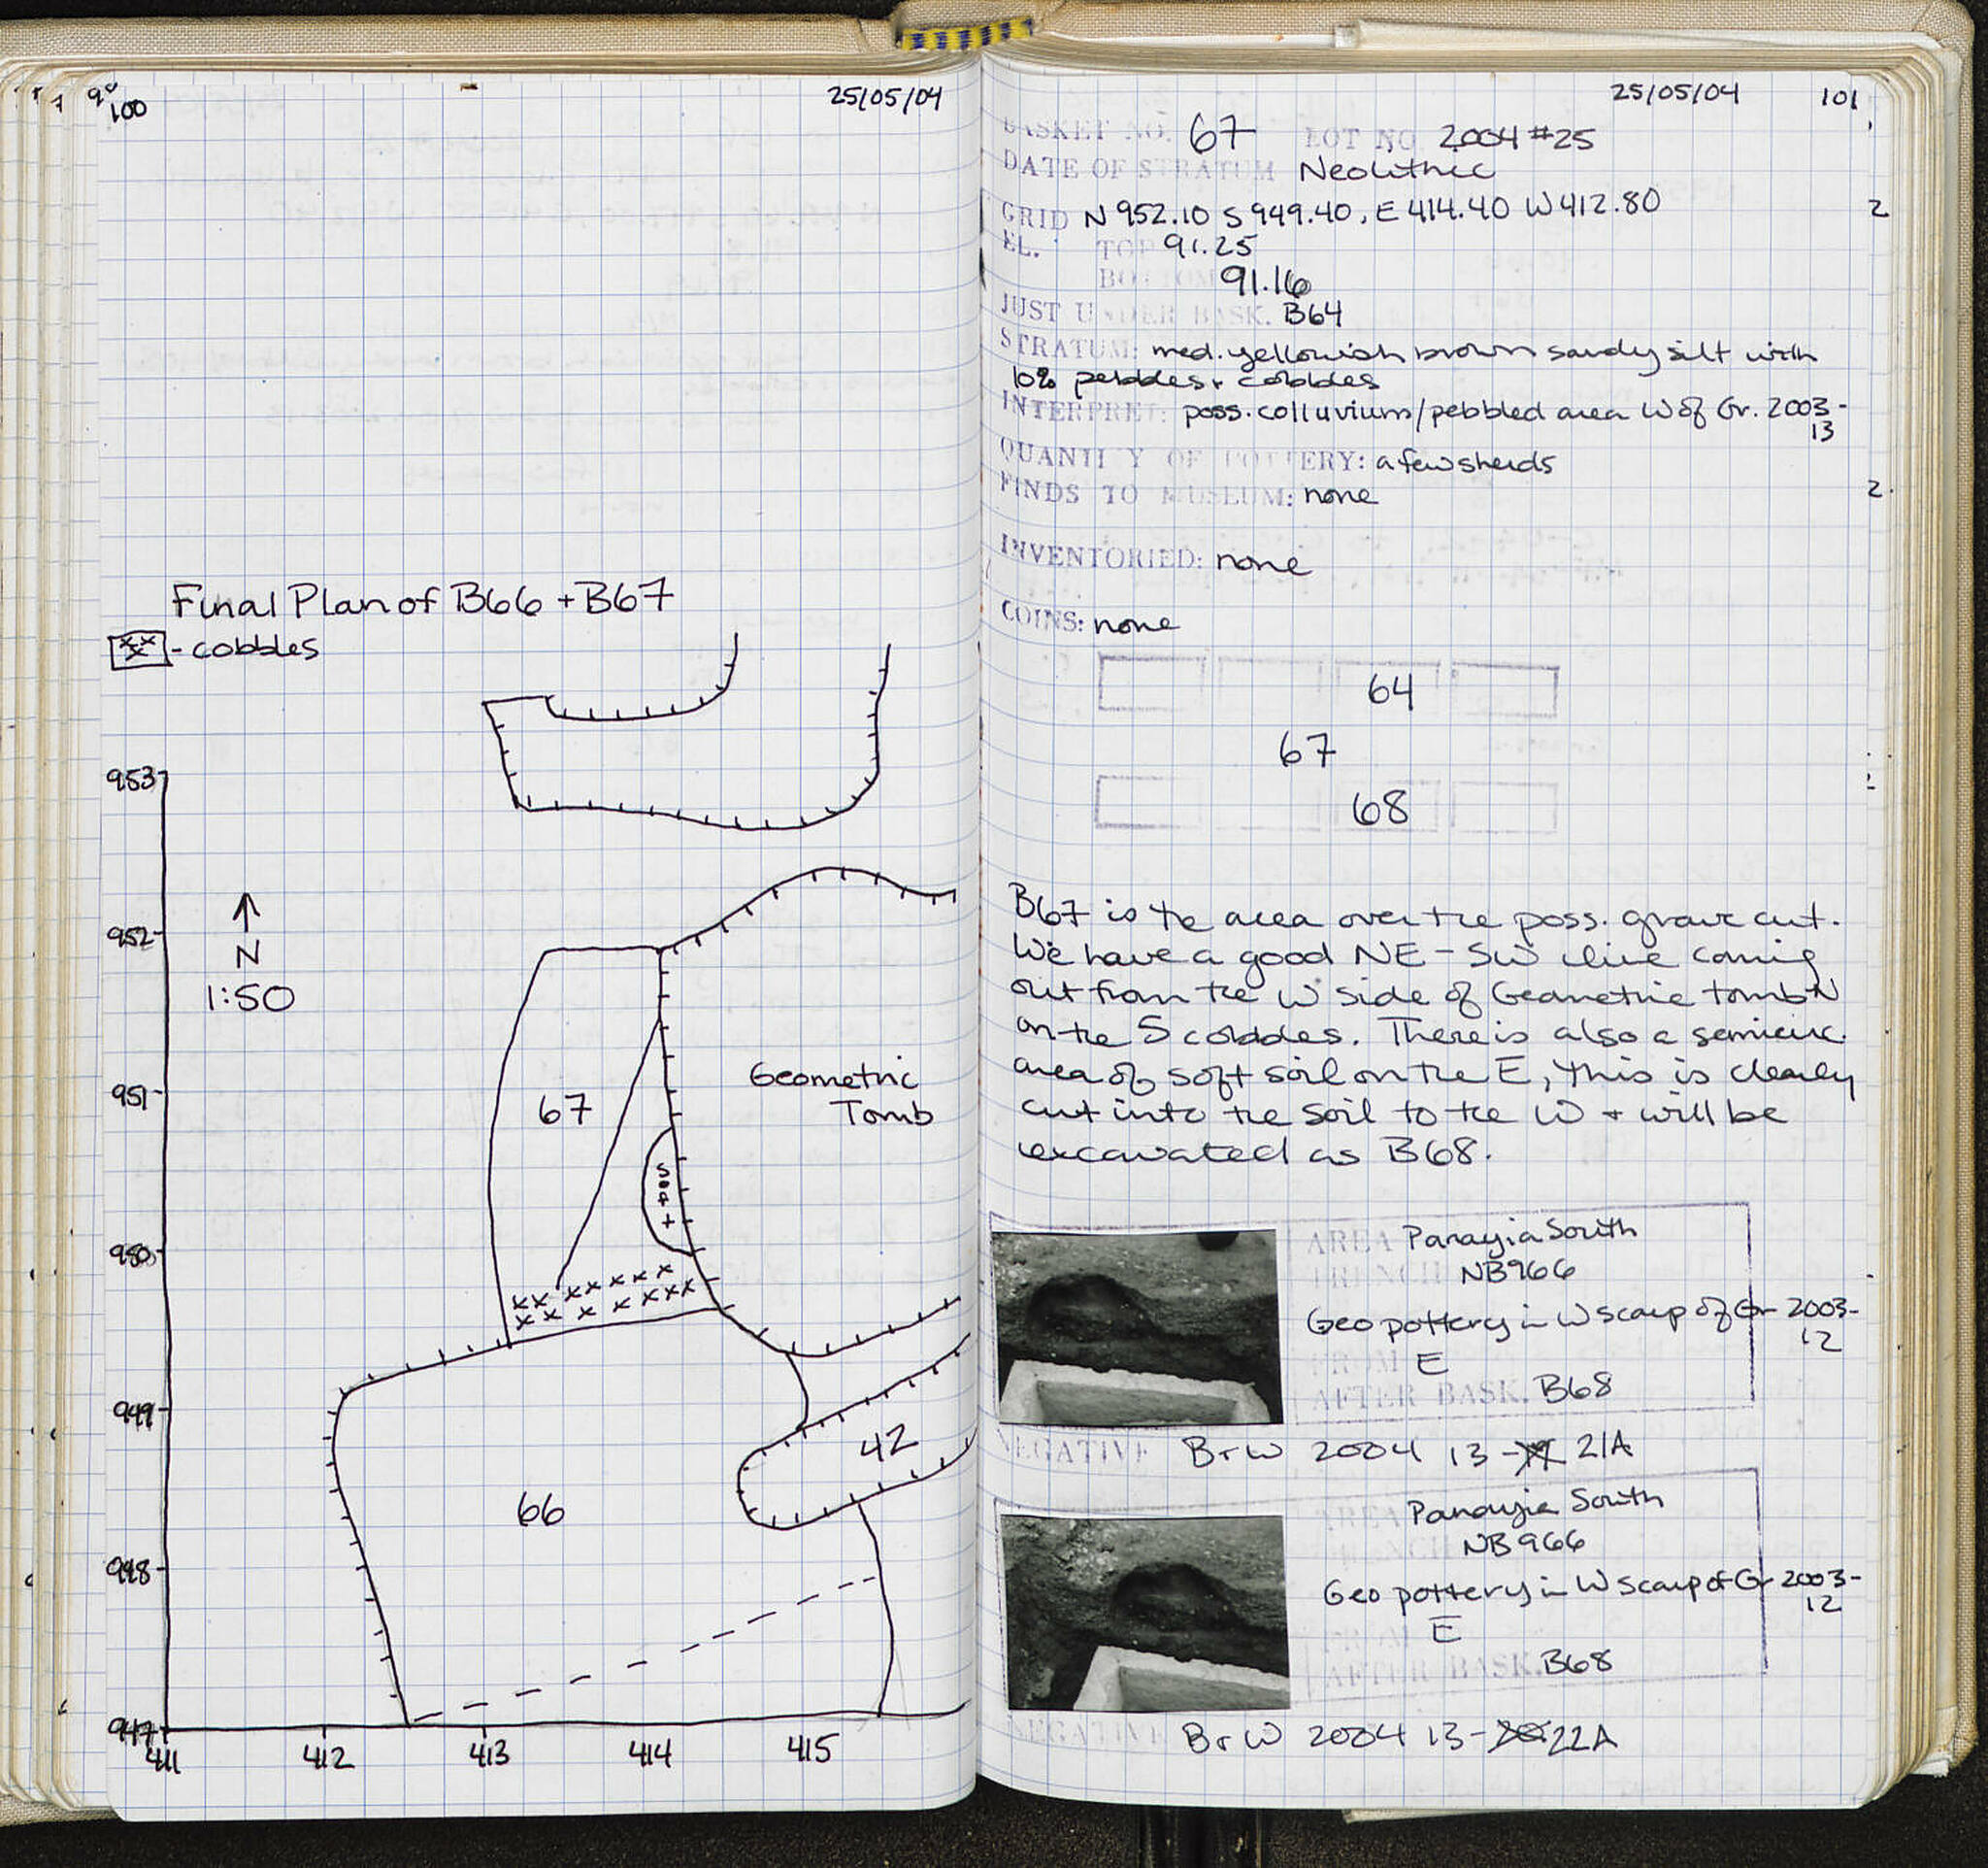 100
25/05/04
Final Plan of B66 + B67
- cobbles
953
952
951
950
949
948
947
411 412 413 414 415
N
1:50
67
Geometric
Tomb
soft
42
66
25/05/04 101
BASKET NO. 67 LOT NO. 2004 #25
DATE OF STRATUM Neolithic
GRID N 952.10 S 949.40, E 414.40 W 412.80
EL. TOP 91.25
BOTTOM 91.16
JUST UNDER BASK. B64
STRATUM: med. yellowish brown sandy silt with
10% pebbles + cobbles
INTERPRET: poss. colluvium/pebbled area W of Gr. 2003-
13
QUANTITY OF POTTERY: a few sherds
FINDS TO MUSEUM: none
INVENTORIED: none
COINS: none
64
67
68
B67 is the area over the poss. grave cut.
We have a good NE-SW line coming
out from the W side of Geometric tomb
on the S cobbles. There is also a semicirc.
area of soft soil on the E, this is clearly
cut into the soil to the W + will be
excavated as B68.
AREA Panayia South
TRENCH NB966
Geo pottery in W scarp of Gr 2003-
12
FROM E
AFTER BASK. B68
NEGATIVE B+W 2004 13- 21A
AREA Panayia South
TRENCH NB966
Geo pottery in W scarp of Gr 2003-
12
FROM E
AFTER BASK. B68
NEGATIVE B+W 2004 13- 22A